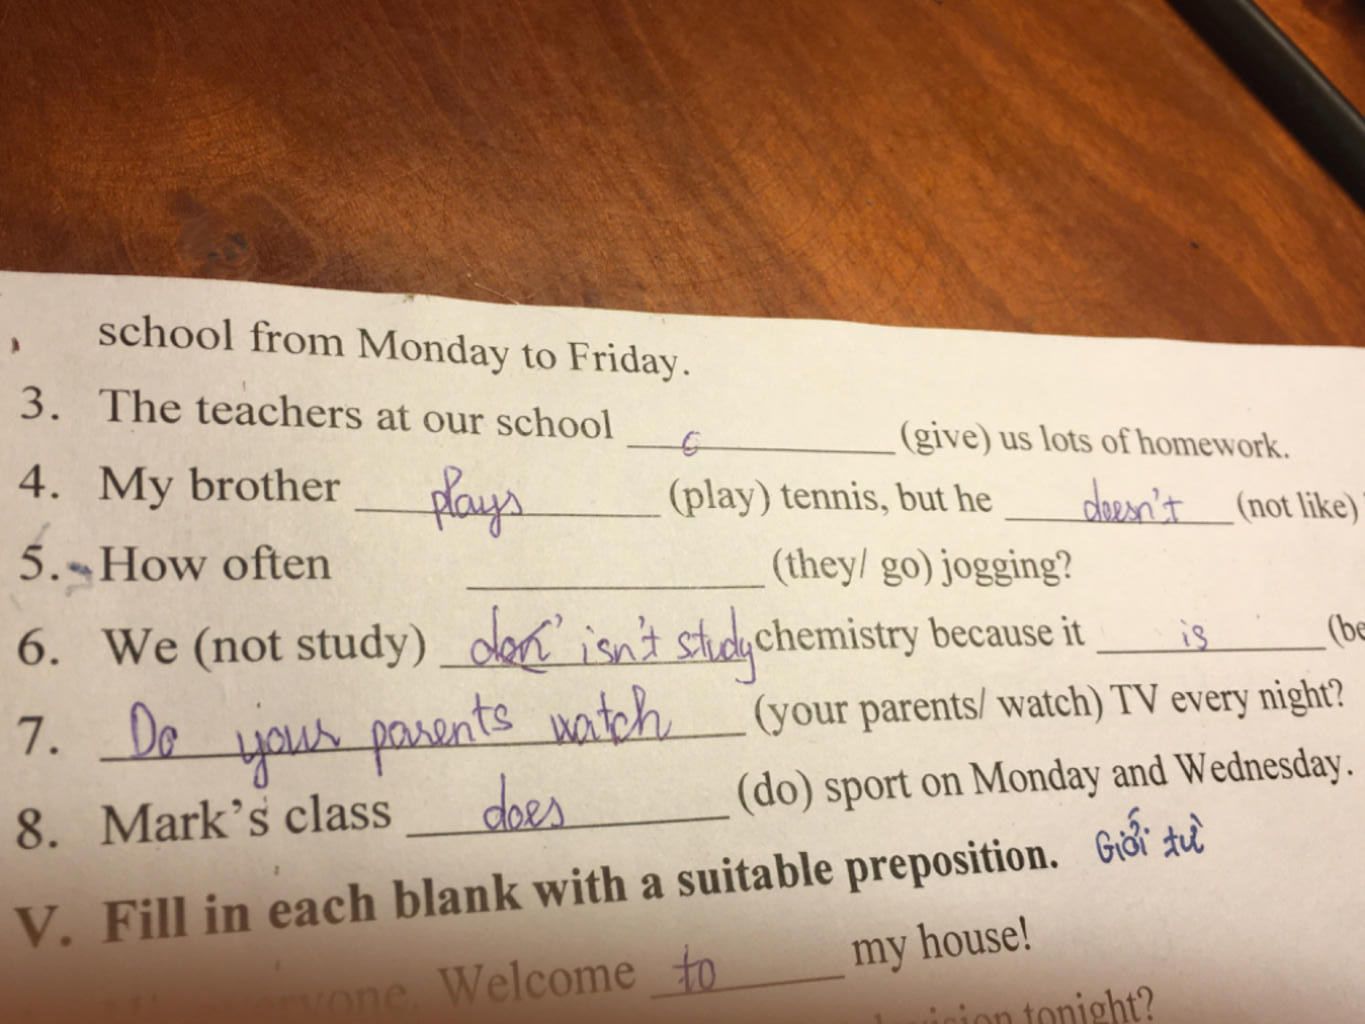 school from Monday to Friday.
3. The teachers at our school ____ (give) us lots of homework.
4. My brother plays (play) tennis, but he doesn't (not like)
5. How often ____ (they/ go) jogging?
6. We (not study) isn't study chemistry because it is (be
7. Do your parents watch (your parents/ watch) TV every night?
8. Mark's class does (do) sport on Monday and Wednesday.
V. Fill in each blank with a suitable preposition. Giới từ
everyone. Welcome to my house!
tonight?